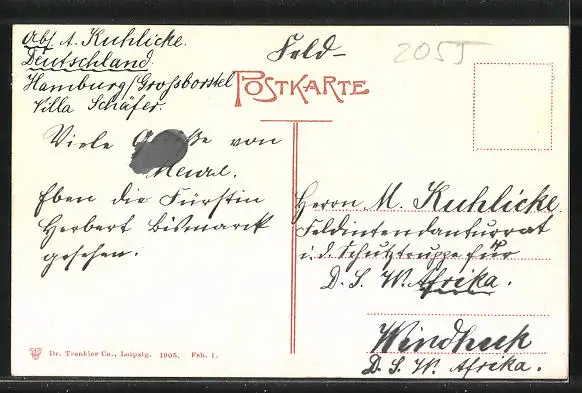 Abs. A. Kuhlicke.
Deutschland.
Hamburg/Grossborstel
Villa Schäfer.
Feld-
2055
POSTKARTE
Viele Grüße von
Eben die Fürstin
Herbert Bismarck
gesehen.
Herrn M. Kuhlicke.
Feldintendanturrat
i. d. Schutztruppe für
D. S. W. Afrika.
Windhuk
D. S. W. Afrika.
Dr. Trenkler Co., Leipzig. 1905. Fsh. 1.